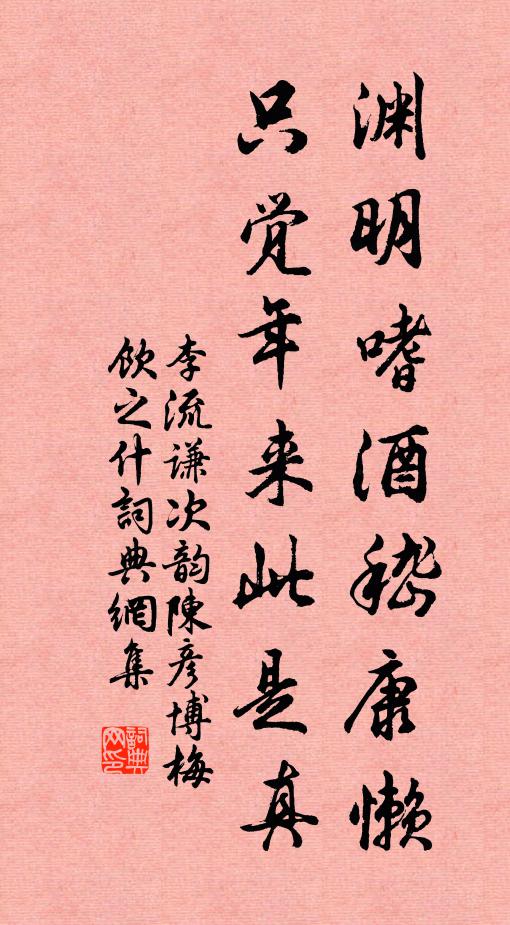 渊明嗜酒嵇康懒
只觉年来此是真
李流谦次韵陳彦博梅
飲之什詞典網集
詞典
网印